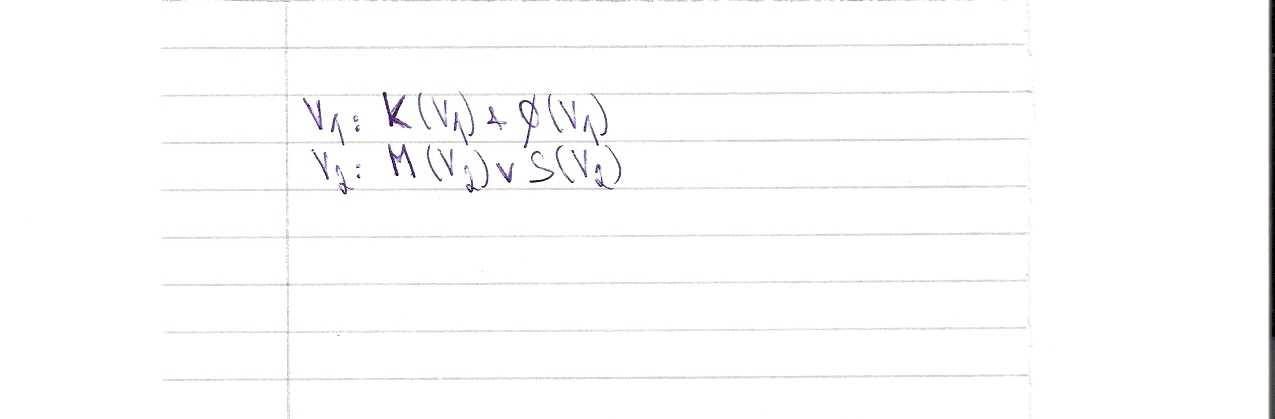 V₁: K(V₁) ∧ φ(V₁)
V₂: M(V₂) ∨ S(V₂)